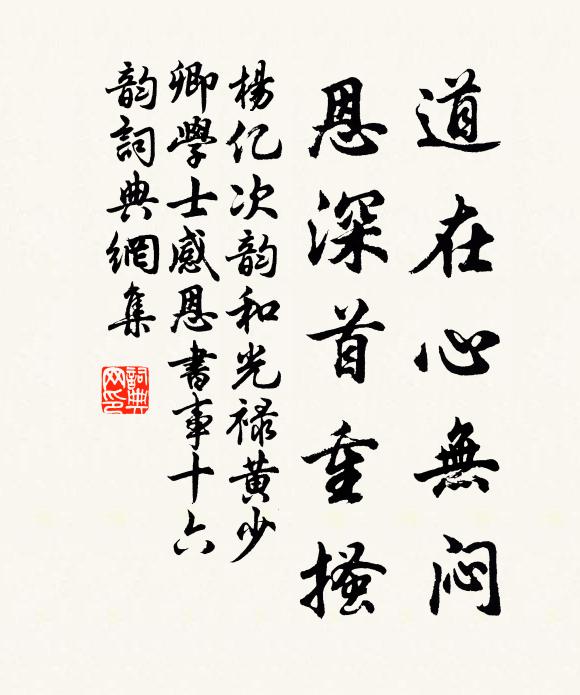 道在心無悶
恩深首重搔
楊億次韵和光祿黃少
卿學士感恩書事十六
韵詞典網集
詞典網印